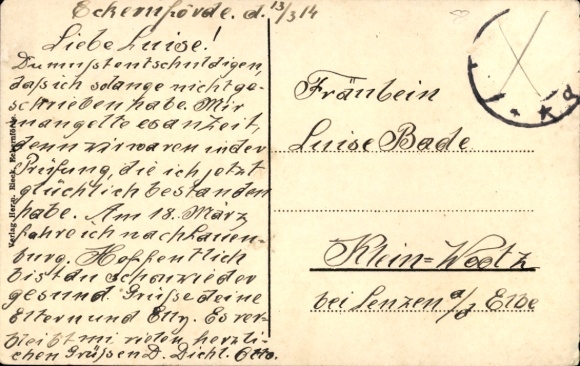 Eckernförde. d. 13/3 14
Liebe Luise!
Du mußt entschuldigen,
daß ich solange nicht ge-
schrieben habe. Mir
mangelte es an Zeit,
denn wir waren in der
Prüfung, die ich jetzt
glücklich bestanden
habe. Am 18. März
fahre ich nach Lauen-
burg. Hoffentlich
bist du schon wieder
gesund. Grüße deine
Eltern und Elly. Es ver-
bleibt mit vielen herzli-
chen Grüßen D. Dichl. Otto.
Verlag Herg. Rieck, Eckernförde
Fräulein
Luise Bade
Klein=Wootz
bei Lenzen a/d Elbe